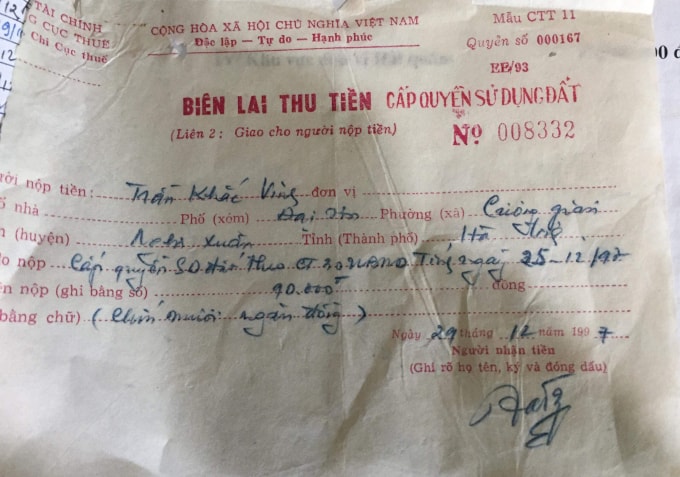 TÀI CHÍNH
G CỤC THUẾ
Chi Cục thuế
CỘNG HÒA XÃ HỘI CHỦ NGHĨA VIỆT NAM
Độc lập - Tự do - Hạnh phúc
Mẫu CTT 11
Quyển số 000167
EE/93
BIÊN LAI THU TIỀN CẤP QUYỀN SỬ DỤNG ĐẤT
(Liên 2: Giao cho người nộp tiền)
Nº 008332
ười nộp tiền: Trần Khắc Ving đơn vị
ố nhà Phố (xóm) Đại Phường (xã) Cương gián
(huyện) Xuân Tỉnh (Thành phố) Hà Tĩnh
o nộp Cấp quyền SD đất theo Tỉnh ngày 25-12/97
ền nộp (ghi bằng số) 90.000đ đồng
bằng chữ) (Chín mươi ngàn đồng)
Ngày 29 tháng 12 năm 1997
Người nhận tiền
(Ghi rõ họ tên, ký và đóng dấu)